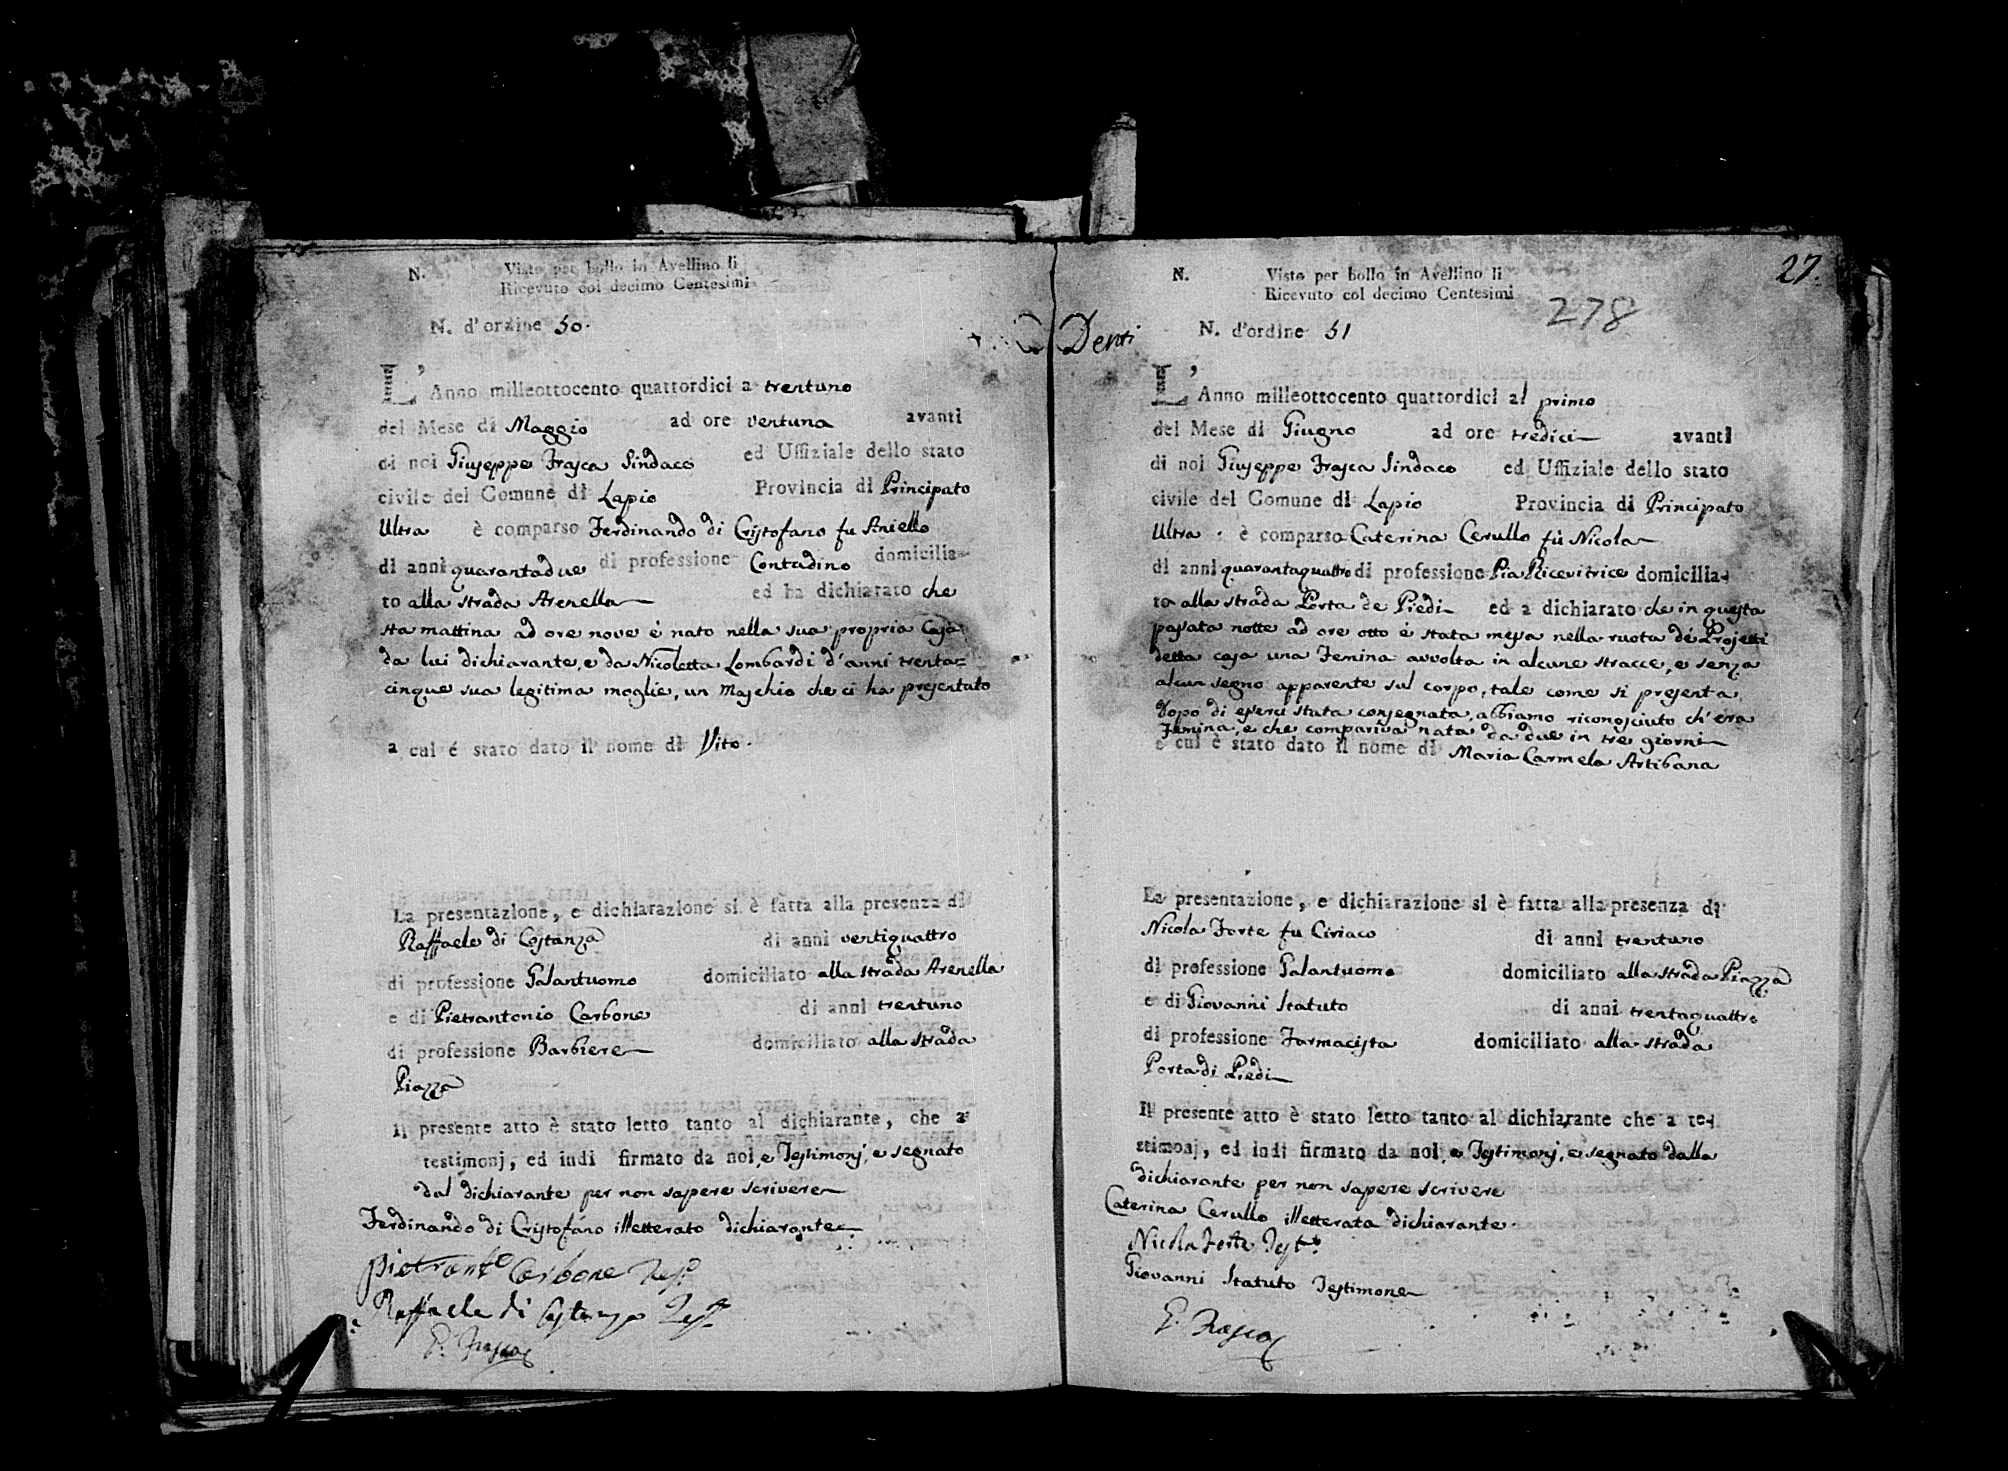 N. Visto per bollo in Avellino li
Ricevuto col decimo Centesimi
N. d'ordine 50.
L'Anno milleottocento quattordici a trentuno
del Mese di Maggio ad ore ventuna avanti
di noi Giuseppe Frasca Sindaco ed Uffiziale dello stato
civile del Comune di Lapio Provincia di Principato
Ultra è comparso Ferdinando di Cristofano fu Aniello
di anni quarantadue di professione Contadino domicilia-
to alla strada Arenella ed ha dichiarato che
sta mattina ad ore nove è nato nella sua propria casa
da lui dichiarante, e da Nicoletta Lombardi d'anni trenta=
cinque sua legitima moglie, un Maschio che ci ha presentato
a cui é stato dato il nome di Vito.
La presentazione, e dichiarazione si è fatta alla presenza di
Raffaele di Costanza di anni ventiquattro
di professione Galantuomo domiciliato alla strada Arenella
e di Pietrantonio Carbone di anni trentuno
di professione Barbiere domiciliato alla strada
Piazza
Il presente atto è stato letto tanto al dichiarante, che a
testimonj, ed indi firmato da noi, e Testimonj, e segnato
dal dichiarante per non sapere scrivere
Ferdinando di Cristofano illetterato dichiarante
Pietrant.o Carbone Tes.o
Raffaele di Costanza Tes.o
G. Frasca
Denti
27.
N. Visto per bollo in Avellino li
Ricevuto col decimo Centesimi
278
N. d'ordine 51
L'Anno milleottocento quattordici al primo
del Mese di Giugno ad ore tredici avanti
di noi Giuseppe Frasca Sindaco ed Uffiziale dello stato
civile del Comune di Lapio Provincia di Principato
Ultra è comparso Caterina Cerullo fù Nicola
di anni quarantaquattro di professione Pia Ricevitrice domicilia-
to alla strada Porta de Piedi ed a dichiarato che in questa
passata notte ad ore otto è stata messa nella ruota de' Projetti
della casa una Femina avvolta in alcune stracce, e senza
alcun segno apparente sul corpo, tale come si presenta,
Dopo di esserci stata consegnata, abbiamo riconosciuto ch'era
Femina, e che compariva nata da due in tre giorni
e cui è stato dato il nome di Maria Carmela Artibana
La presentazione, e dichiarazione si è fatta alla presenza di
Nicola Forte fu Ciriaco di anni trentuno
di professione Galantuomo domiciliato alla strada Piazza
e di Giovanni Statuto di anni trentaquattro
di professione Farmacista domiciliato alla strada
Porta di Piedi
Il presente atto è stato letto tanto al dichiarante che a te-
stimonj, ed indi firmato da noi, e Testimonj, e segnato dalla
dichiarante per non sapere scrivere
Caterina Cerullo illetterata dichiarante.
Nicola Forte Test.e
Giovanni Statuto Testimone
G. Frasca